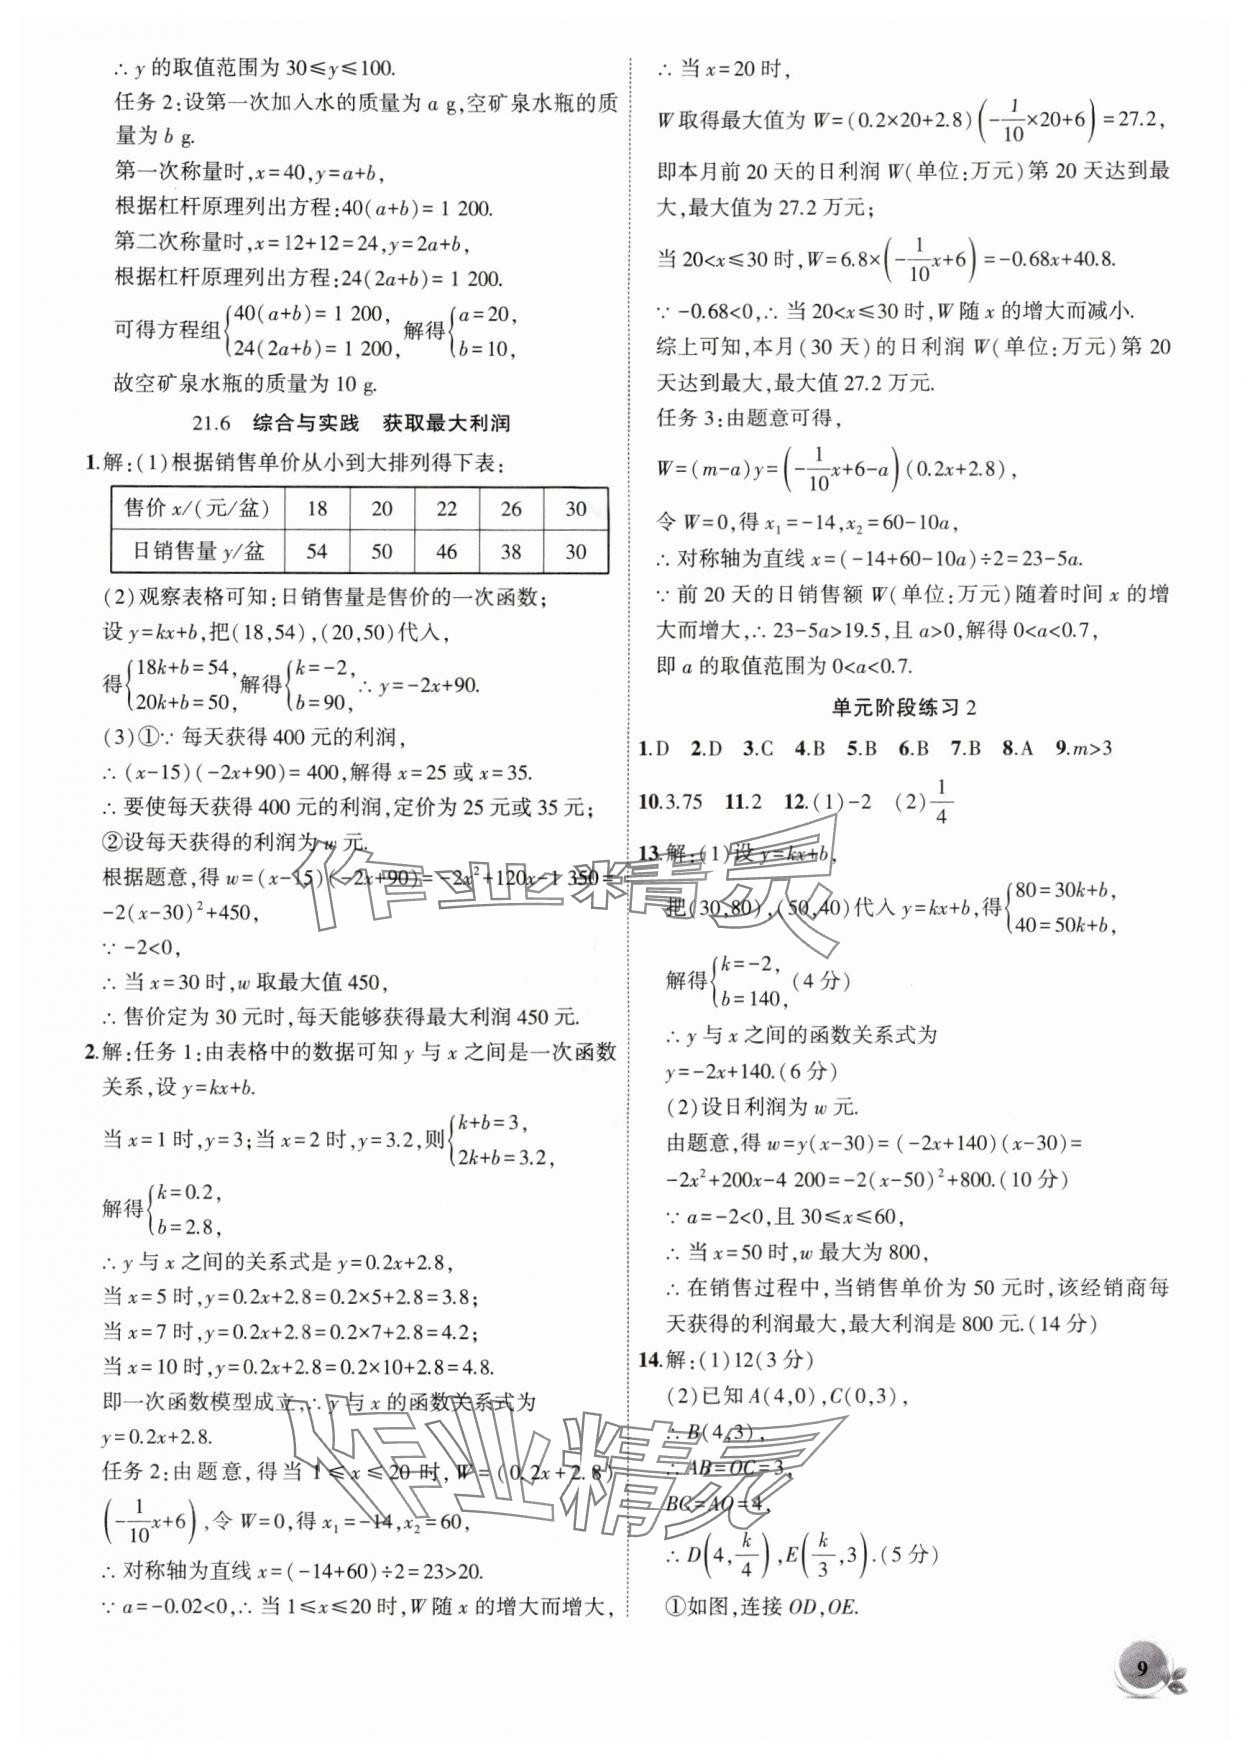 ∴ y 的取值范围为 30≤y≤100.
任务 2:设第一次加入水的质量为 a g,空矿泉水瓶的质
量为 b g.
第一次称量时,x=40,y=a+b,
根据杠杆原理列出方程:40(a+b)=1 200.
第二次称量时,x=12+12=24,y=2a+b,
根据杠杆原理列出方程:24(2a+b)=1 200.
可得方程组{40(a+b)=1 200, 24(2a+b)=1 200, 解得{a=20, b=10,
故空矿泉水瓶的质量为 10 g.
21.6 综合与实践 获取最大利润
1.解:(1)根据销售单价从小到大排列得下表:
售价 x/(元/盆) 18 20 22 26 30
日销售量 y/盆 54 50 46 38 30
(2)观察表格可知:日销售量是售价的一次函数;
设 y=kx+b,把(18,54),(20,50)代入,
得{18k+b=54, 20k+b=50, 解得{k=-2, b=90, ∴ y=-2x+90.
(3)①∵ 每天获得 400 元的利润,
∴ (x-15)(-2x+90)=400,解得 x=25 或 x=35.
∴ 要使每天获得 400 元的利润,定价为 25 元或 35 元;
②设每天获得的利润为 w 元.
根据题意,得 w=(x-15)(-2x+90)=-2x²+120x-1 350=
-2(x-30)²+450,
∵ -2<0,
∴ 当 x=30 时,w 取最大值 450,
∴ 售价定为 30 元时,每天能够获得最大利润 450 元.
2.解:任务 1:由表格中的数据可知 y 与 x 之间是一次函数
关系,设 y=kx+b.
当 x=1 时,y=3;当 x=2 时,y=3.2,则{k+b=3, 2k+b=3.2,
解得{k=0.2, b=2.8,
∴ y 与 x 之间的关系式是 y=0.2x+2.8,
当 x=5 时,y=0.2x+2.8=0.2×5+2.8=3.8;
当 x=7 时,y=0.2x+2.8=0.2×7+2.8=4.2;
当 x=10 时,y=0.2x+2.8=0.2×10+2.8=4.8.
即一次函数模型成立,∴ y 与 x 的函数关系式为
y=0.2x+2.8.
任务 2:由题意,得当 1≤x≤20 时,W=(0.2x+2.8)
(-1/10x+6),令 W=0,得 x₁=-14,x₂=60,
∴ 对称轴为直线 x=(-14+60)÷2=23>20.
∵ a=-0.02<0,∴ 当 1≤x≤20 时,W 随 x 的增大而增大,
∴ 当 x=20 时,
W 取得最大值为 W=(0.2×20+2.8)(-1/10×20+6)=27.2,
即本月前 20 天的日利润 W(单位:万元)第 20 天达到最
大,最大值为 27.2 万元;
当 20<x≤30 时,W=6.8×(-1/10x+6)=-0.68x+40.8.
∵ -0.68<0,∴ 当 20<x≤30 时,W 随 x 的增大而减小.
综上可知,本月(30 天)的日利润 W(单位:万元)第 20
天达到最大,最大值 27.2 万元.
任务 3:由题意可得,
W=(m-a)y=(-1/10x+6-a)(0.2x+2.8),
令 W=0,得 x₁=-14,x₂=60-10a,
∴ 对称轴为直线 x=(-14+60-10a)÷2=23-5a.
∵ 前 20 天的日销售额 W(单位:万元)随着时间 x 的增
大而增大,∴ 23-5a>19.5,且 a>0,解得 0<a<0.7,
即 a 的取值范围为 0<a<0.7.
单元阶段练习 2
1.D 2.D 3.C 4.B 5.B 6.B 7.B 8.A 9.m>3
10.3.75 11.2 12.(1)-2 (2)1/4
13.解:(1)设 y=kx+b,
把(30,80),(50,40)代入 y=kx+b,得{80=30k+b, 40=50k+b,
解得{k=-2, b=140, (4 分)
∴ y 与 x 之间的函数关系式为
y=-2x+140.(6 分)
(2)设日利润为 w 元.
由题意,得 w=y(x-30)=(-2x+140)(x-30)=
-2x²+200x-4 200=-2(x-50)²+800.(10 分)
∵ a=-2<0,且 30≤x≤60,
∴ 当 x=50 时,w 最大为 800,
∴ 在销售过程中,当销售单价为 50 元时,该经销商每
天获得的利润最大,最大利润是 800 元.(14 分)
14.解:(1)12(3 分)
(2)已知 A(4,0),C(0,3),
∴ B(4,3),
∴ AB=OC=3,
BC=AO=4,
∴ D(4,k/4),E(k/3,3).(5 分)
①如图,连接 OD,OE.
9
作业精灵
作业精灵